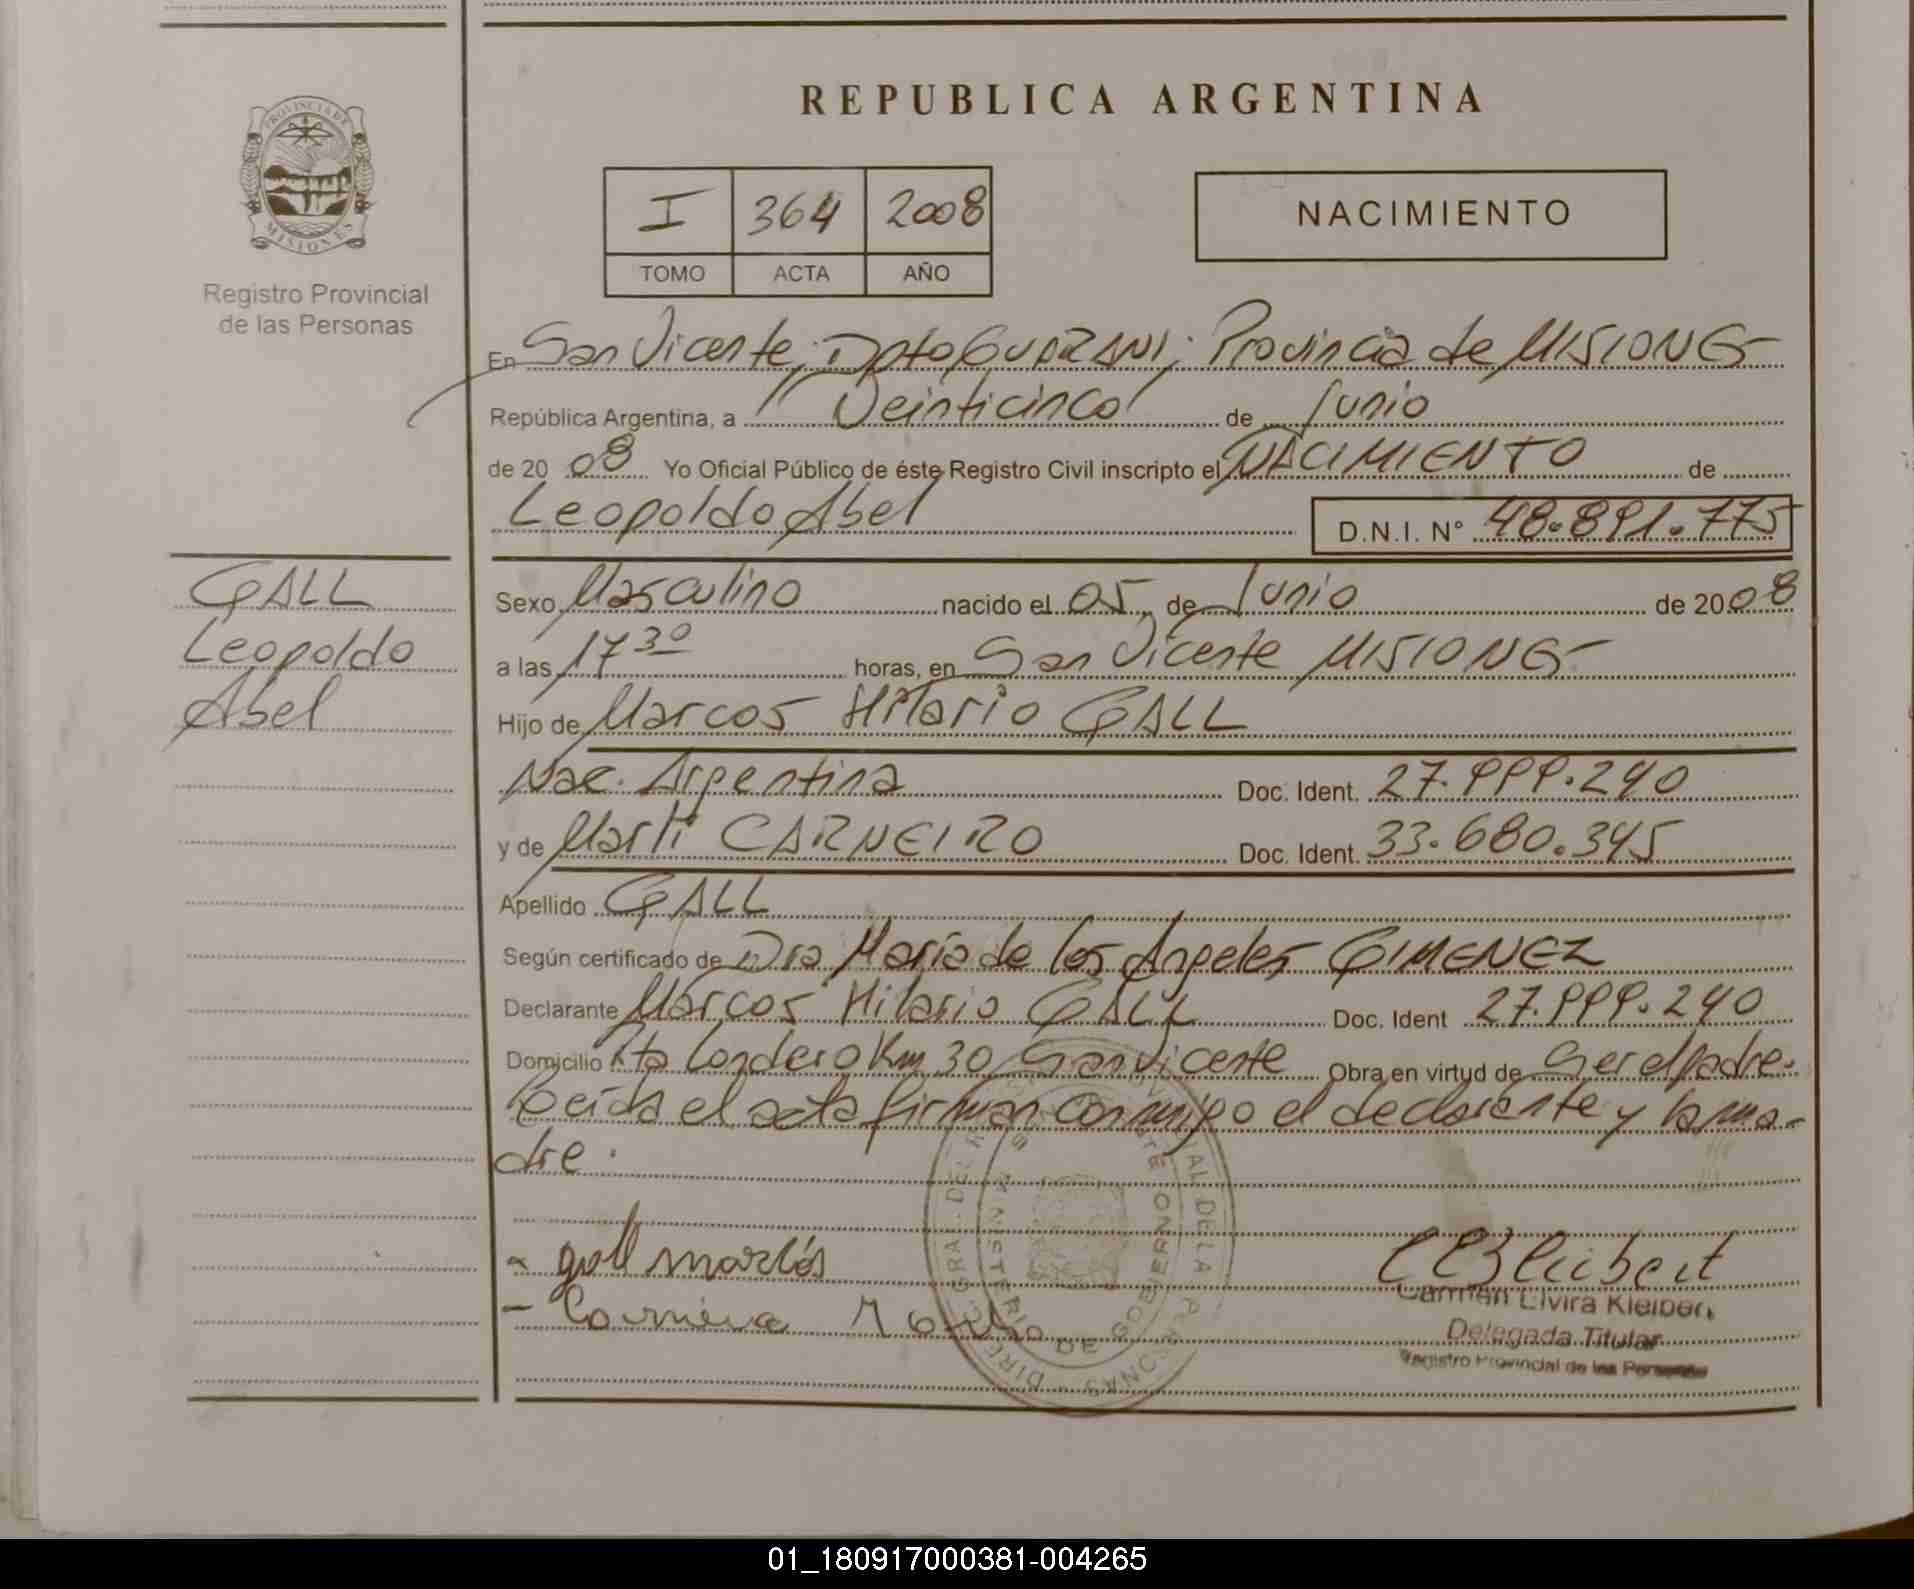 REPUBLICA ARGENTINA
PROVINCIA DE
MISIONES
Registro Provincial
de las Personas
I 364 2008
TOMO ACTA AÑO
NACIMIENTO
En San Vicente, Dpto GUARANI; Provincia de MISIONES
República Argentina, a Veinticinco de Junio
de 20 08 Yo Oficial Público de éste Registro Civil inscripto el NACIMIENTO de
Leopoldo Abel D.N.I. N° 48.891.775
GALL
Leopoldo
Abel
Sexo Masculino nacido el 05 de Junio de 20 08
a las 17 30 horas, en San Vicente MISIONES
Hijo de Marcos Hilario GALL
Nac. Argentina Doc. Ident. 27.999.240
y de Marli CARNEIRO Doc. Ident. 33.680.345
Apellido GALL
Según certificado de Dra María de los Angeles GIMENEZ
Declarante Marcos Hilario GALL Doc. Ident 27.999.240
Domicilio Km 30 San Vicente Obra en virtud de Ser el padre.
Leída el acta firman conmigo el declarante y la ma-
dre.
gall marcos
Carmen Elvira Kleibert
Delegada Titular
Registro Provincial de las Personas
01_180917000381-004265